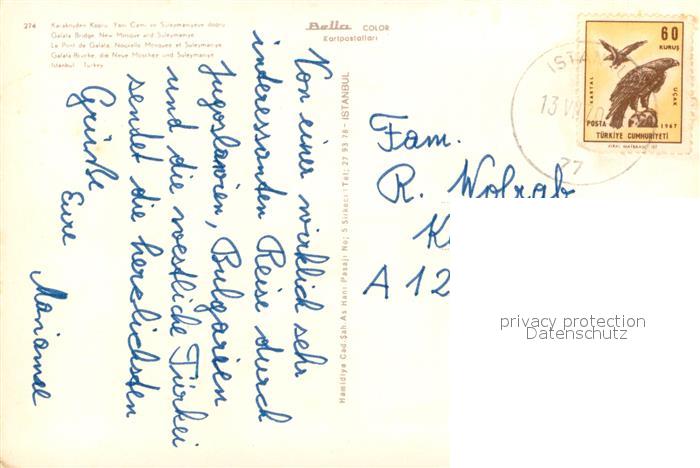 274 Karaköyden Köprü, Yeni Cami ve Süleymaniyeye doğru
Galata Bridge, New Mosque and Suleymaniye
Le Pont de Galata, Nouvelle Mosquée et Suleymaniye
Galata-Brücke, die Neue Moschee und Suleymaniye
Istanbul Turkey
Bella COLOR
Kartpostalları
Von einer wirklich sehr
interessanten Reise durch
Jugoslawien, Bulgarien
und die westliche Türkei
sendet die herzlichsten
Grüße
Eure
Marianne
Hamidiye Cad. Şah As Hanı Pasajı No; 5 Sirkeci Tel; 27 93 78 - İSTANBUL
Fam.
R. Wolrab
K
A 12
60
KURUŞ
KARTAL
UÇAK
POSTA 1967
TÜRKİYE CUMHURİYETİ
13 VII
77
privacy protection
Datenschutz